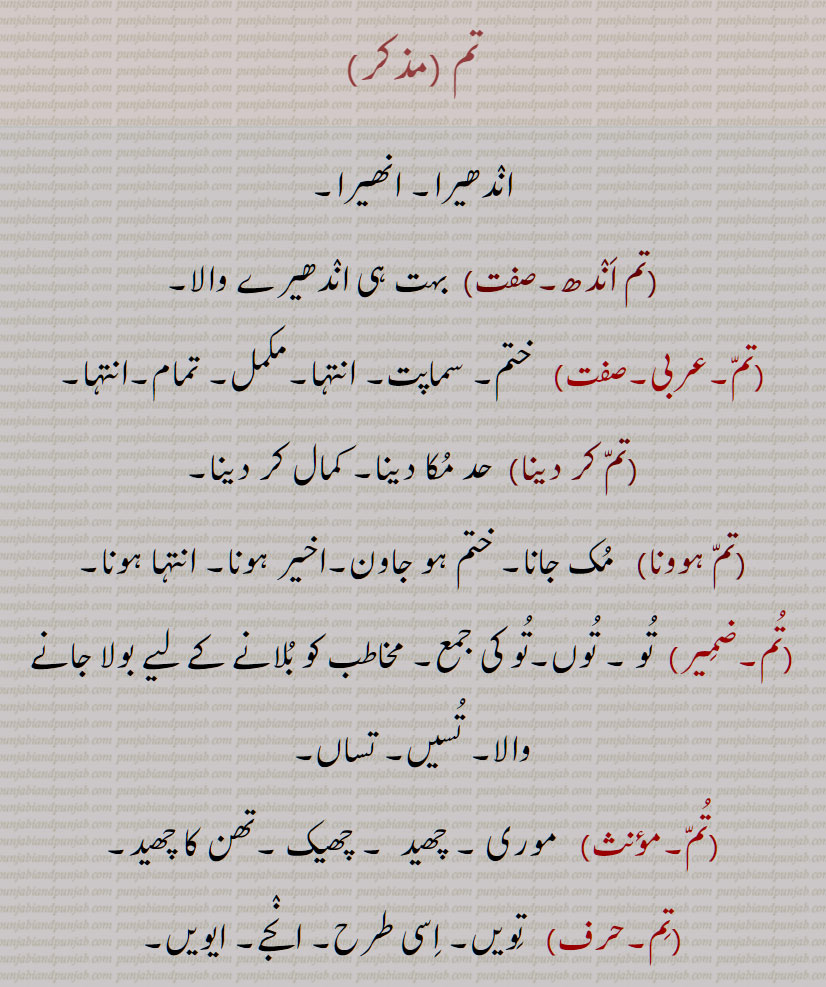 تم (مذکر)
انْدھیرا۔ انھیرا۔
(تم اَنْدھ۔صفت) بہت ہی انْدھیرے والا۔
(تمّ۔عربی۔صفت) ختم۔ سماپت۔ انتہا۔مکمل۔ تمام۔انتہا۔
(تمّ کر دینا) حد مُکا دینا۔ کمال کر دینا۔
(تمّ ہوونا) مُک جانا۔ ختم ہو جاون۔اخیر ہونا۔ انتہا ہونا۔
(تُم۔ضمِیر) تُو ۔ تُوں۔تُو کی جمع۔ مخاطب کو بُلانے کے لیے بولا جانے
والا۔ تُسیں۔ تساں۔
(تُمّ۔مؤنث) موری ۔ چھید ۔ چھیک ۔تھن کا چھید۔
(تِم۔حرف) تِویں۔ اِسی طرح۔ انْجے۔ ایویں۔